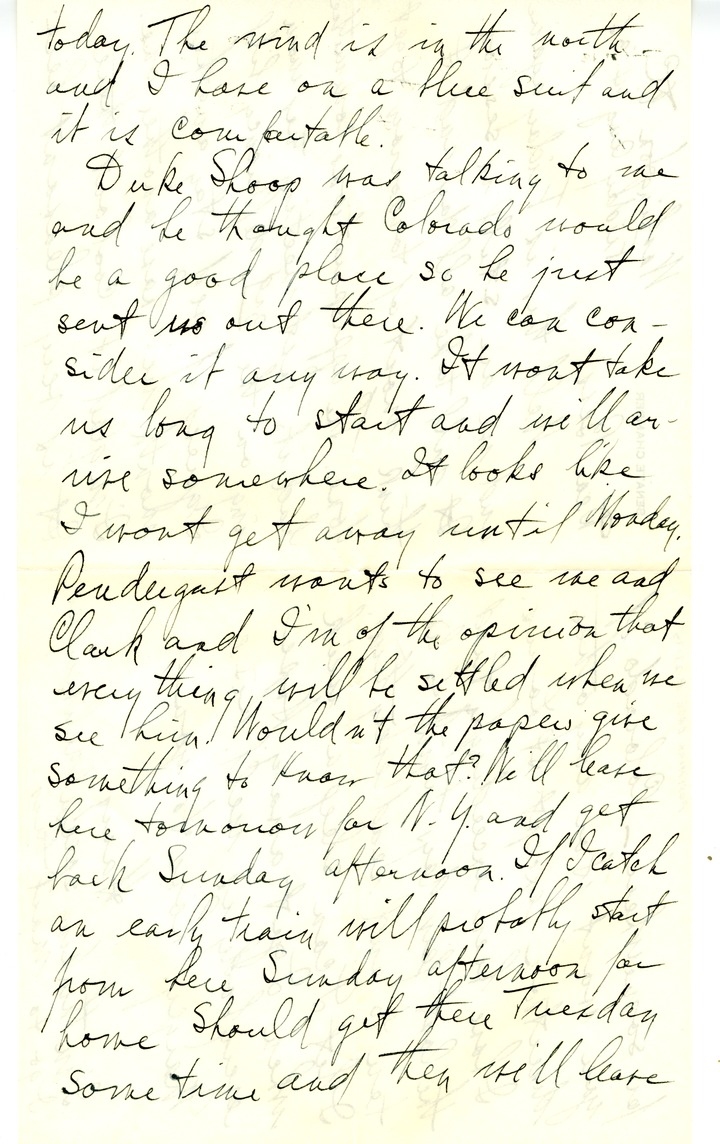 today. The wind is in the north
and I have on a blue suit and
it is comfortable.
Duke Shoop was talking to me
and he thought Colorado would
be a good place so he just
sent us out there. We can con-
sider it any way. It wont take
us long to start and we'll ar-
rive somewhere. It looks like
I wont get away until Monday.
Pendergast wants to see me and
Clark and I'm of the opinion that
everything will be settled when we
see him. Wouldn't the papers give
something to know that? We'll leave
here tomorrow for N.Y. and get
back Sunday afternoon. If I catch
an early train will probably start
from here Sunday afternoon for
home Should get there Tuesday
some time and then we'll leave